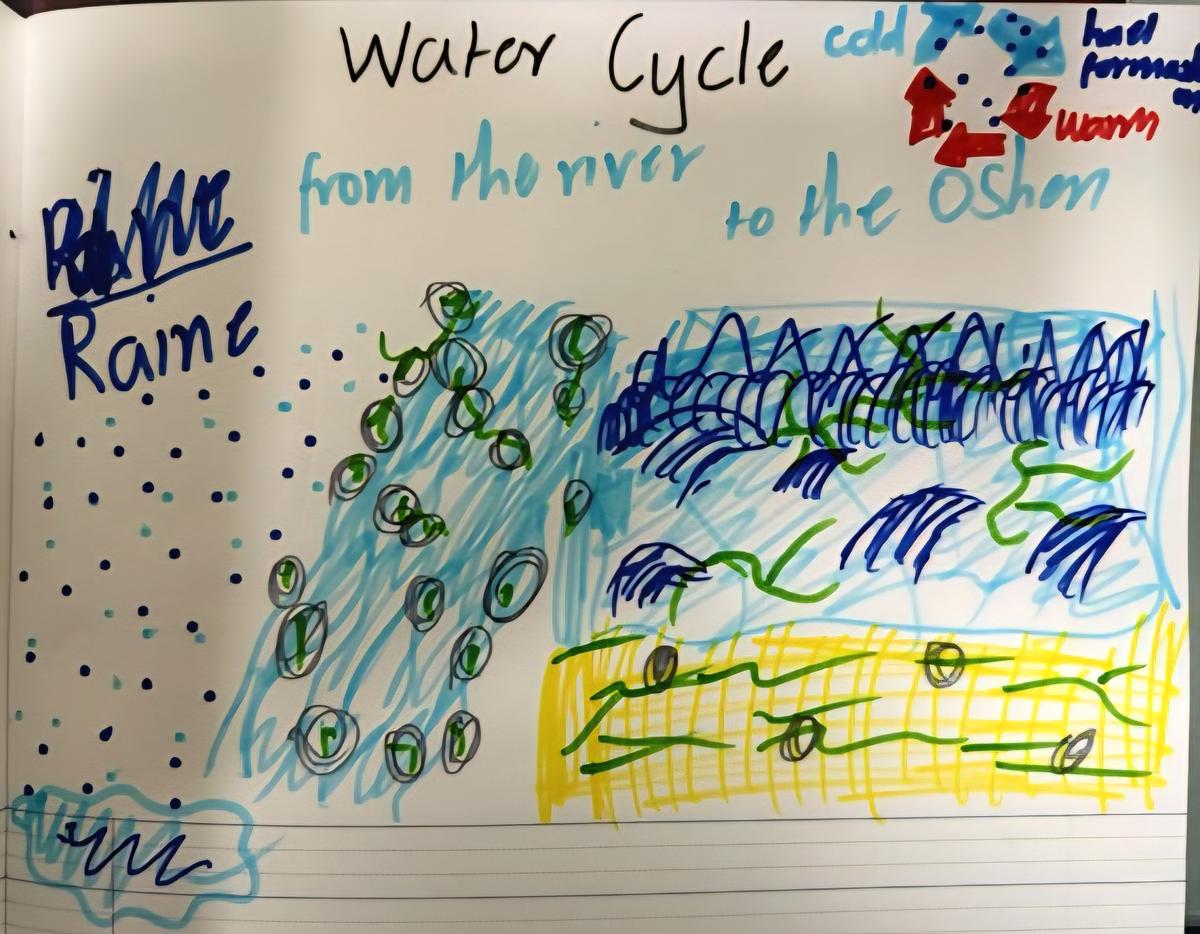 Water Cycle
cold
warm
from the river
to the Oshen
Raine